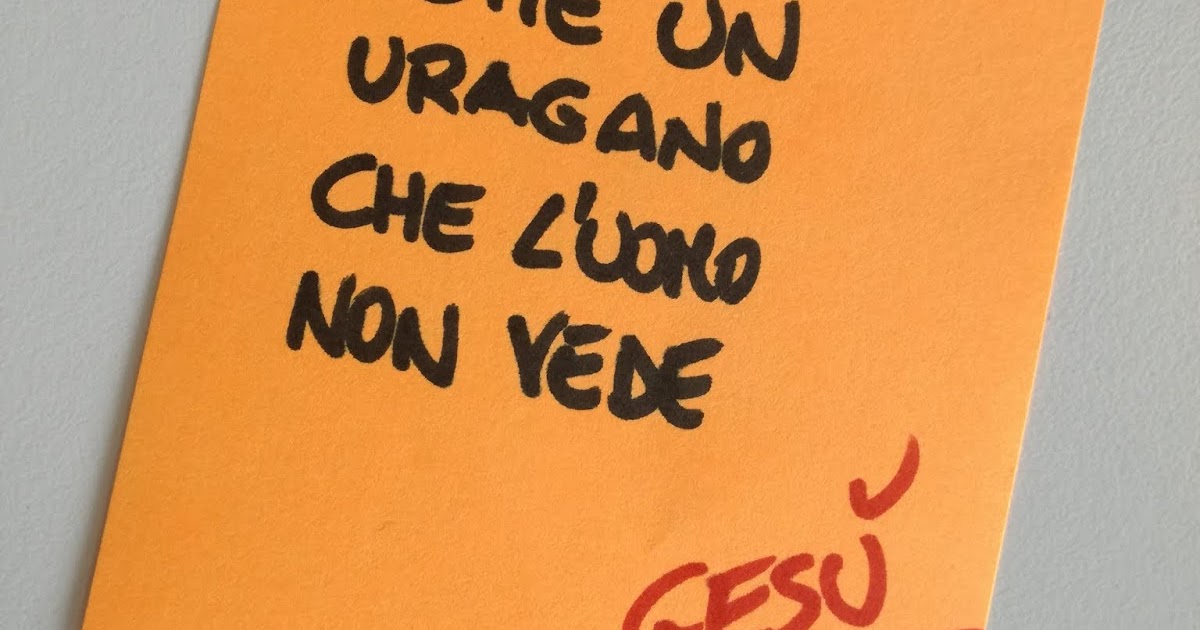 UN
URAGANO
CHE L'UOMO
NON VEDE
GESÙ